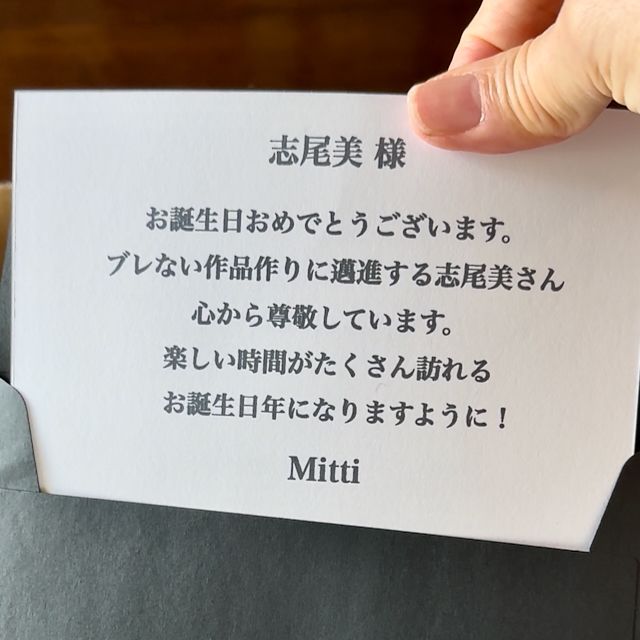 志尾美 様
お誕生日おめでとうございます。
ブレない作品作りに邁進する志尾美さん
心から尊敬しています。
楽しい時間がたくさん訪れる
お誕生日年になりますように！
Mitti